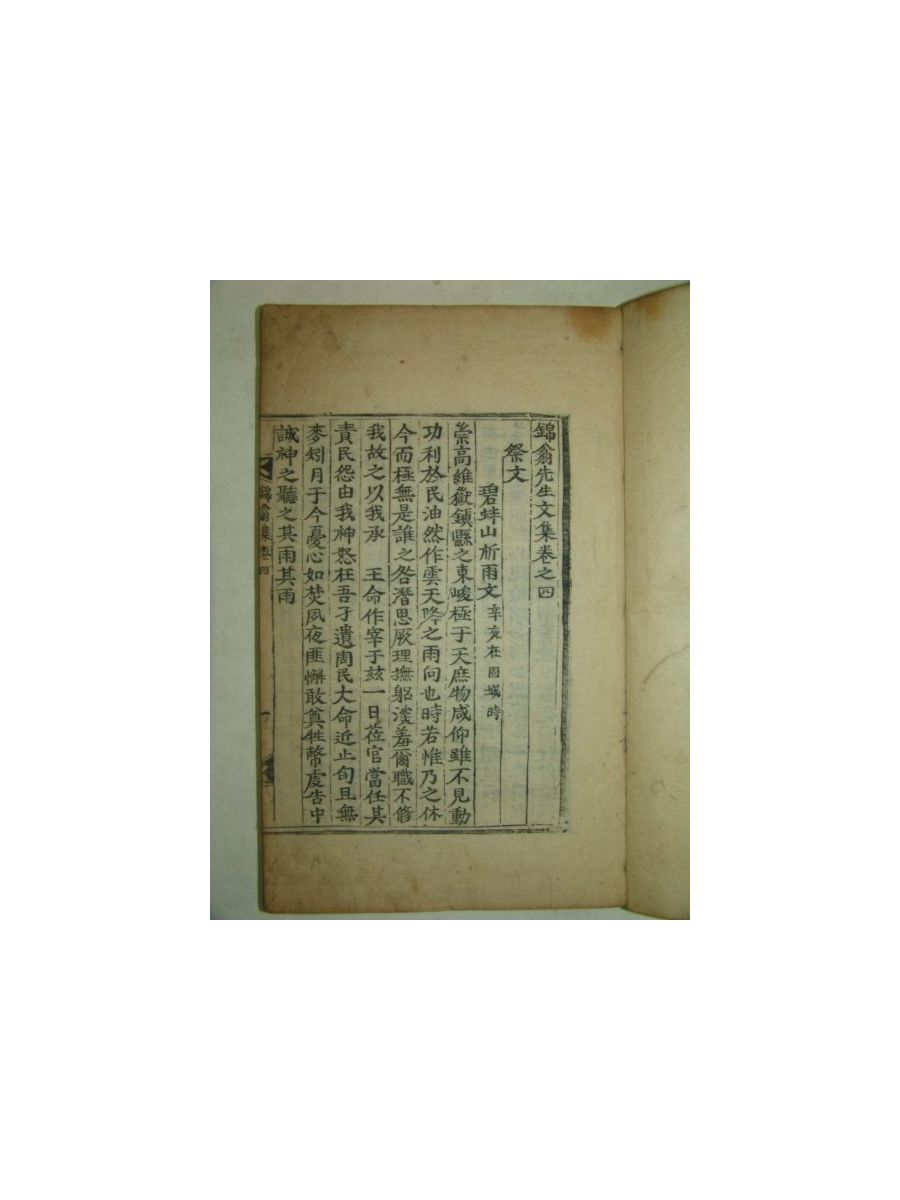 錦翁先生文集卷之四
祭文
碧蚌山祈雨文 辛亥在固城時
崇高維嶽鎮縣之東峻極于天庶物咸仰雖不見動
功利於民油然作雲天降之雨問也時若惟乃之休
今而極無是誰之咎潛思厥理撫躬淡羞爾職不修
我故之以我承 王命作宰于玆一日莅官當任其
責民怨由我神怒在吾孑遺周民大命近止旬且無
麥矧月于今憂心如焚夙夜匪懈敢奠牲幣虔告中
誠神之聽之其雨其雨
錦翁集卷四 一